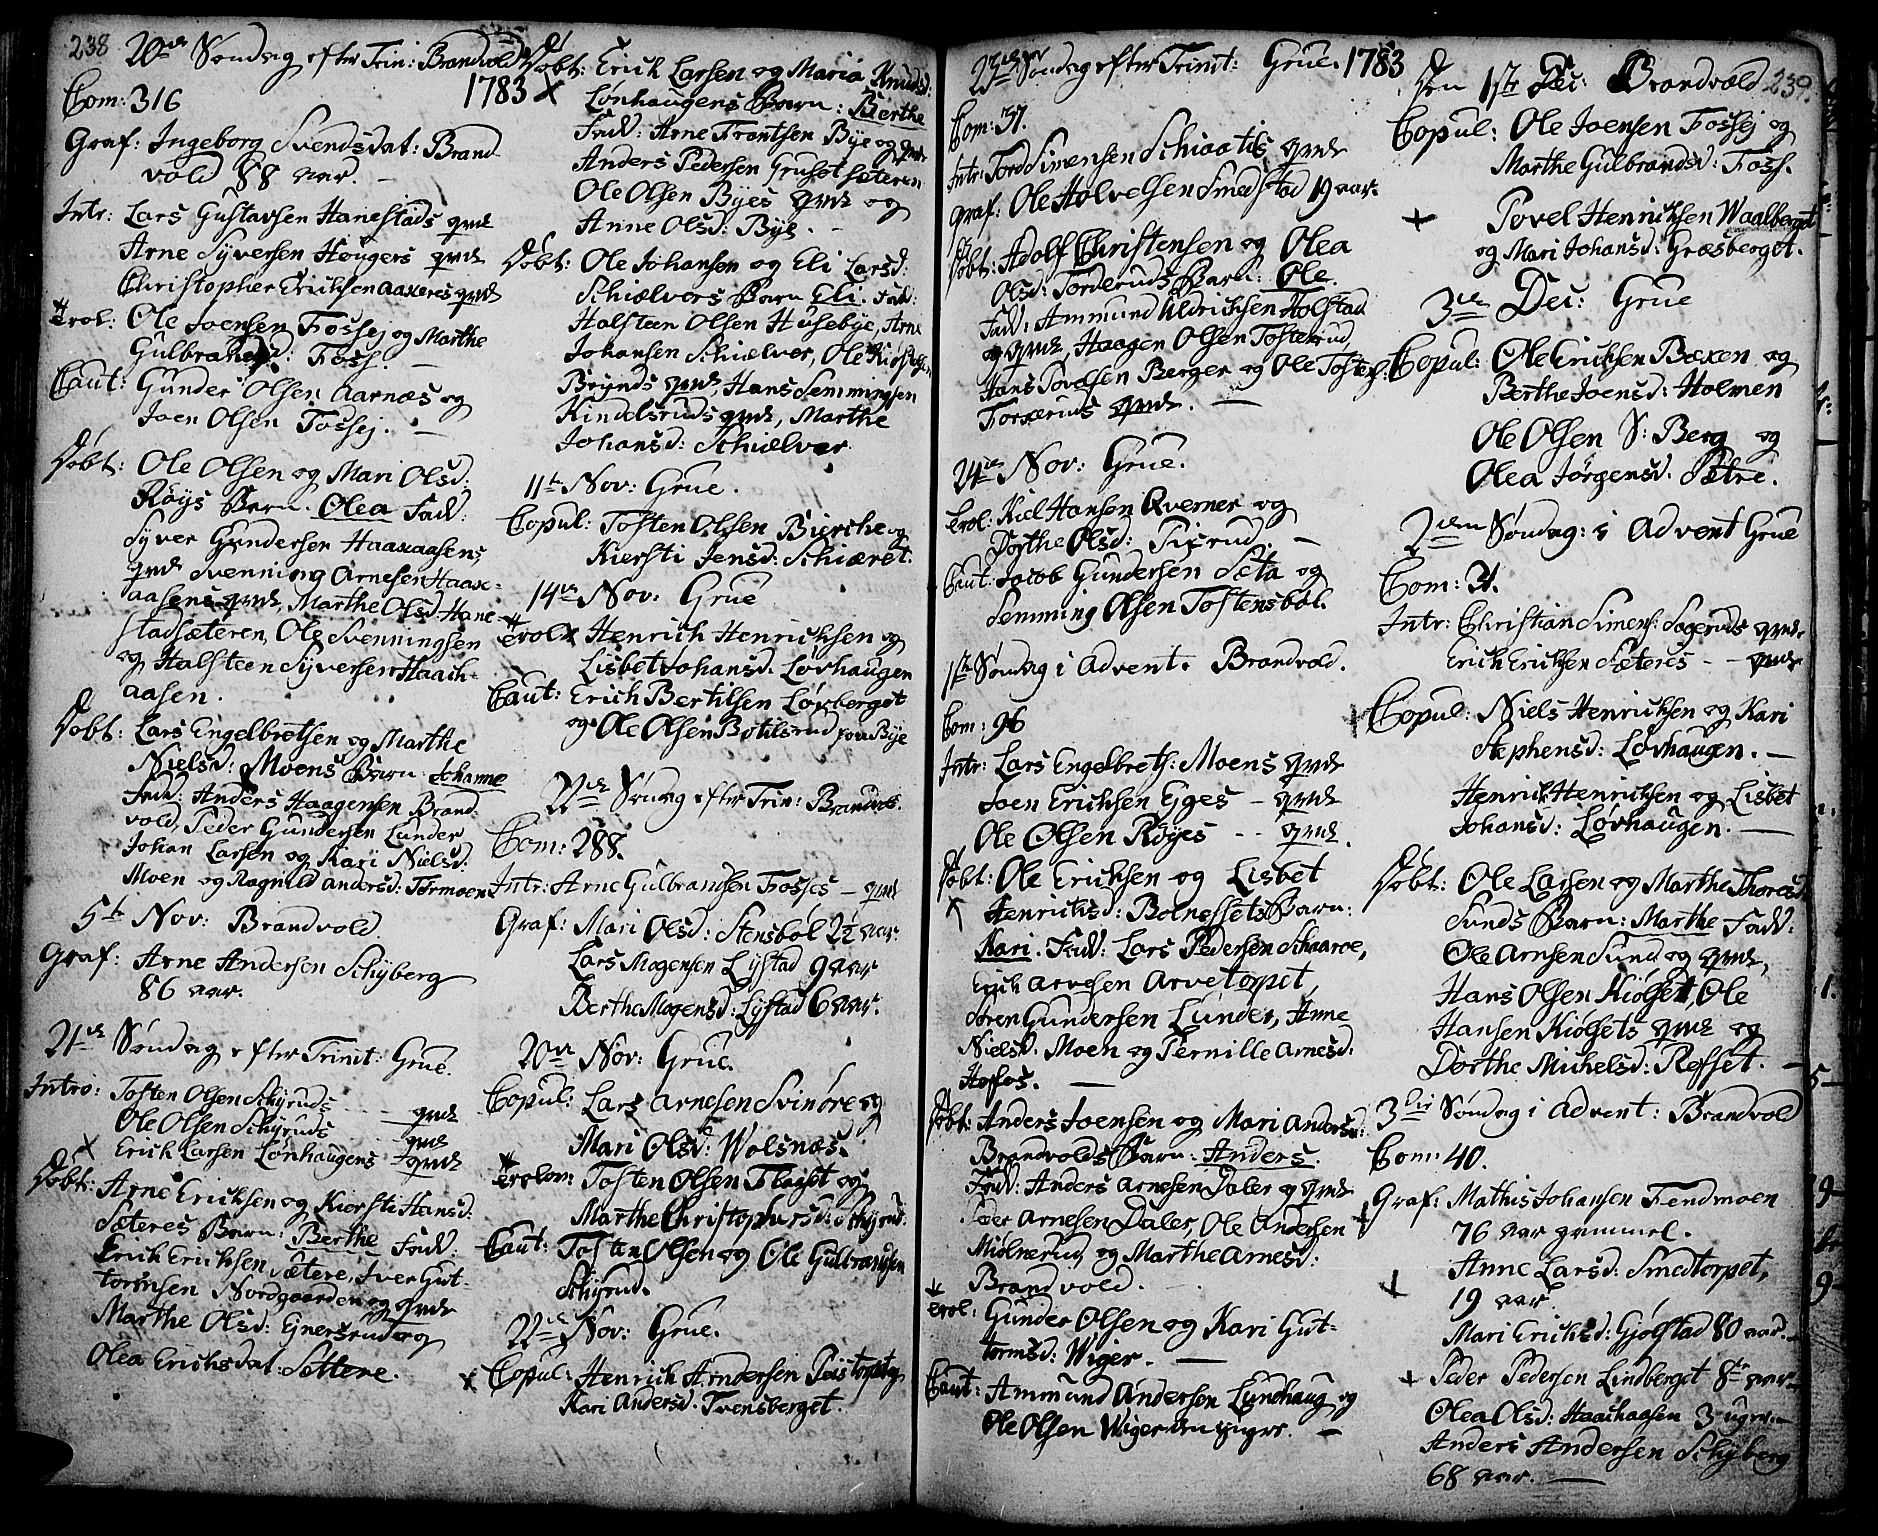 238
20de Søndag efter Trin: Brandvold
1783
Com: 316
Graf: Ingeborg Svendsdat: Brand-
vold 88 aar. -
Intr: Lars Gustavsen Hanestads qvind
Arne Syversen Hougers qvind
Christopher Erichsen Aaxeres qvind
Trol: Ole Joensen Fossej og Marthe
Gulbrandsd: Foss. -
Caut: Gunder Olsen Aarnæs og
Joen Olsen Fossej. -
Døbt: Ole Olsen og Mari Olsd:
Røys Barn. Olea Fadd:
Syver Gundersen Haaxaasens
qvind Svenning Arnesen Haax-
aasens qvind, Marthe Olsd Hane-
stadsæteren, Ole Svenningsen
og Halsteen Syversen Haach-
aasen.
Døbt: Lars Engelbretsen og Marthe
Nielsd: Moens Barn: Johanne
Fadd: Anders Haagensen Brand-
vold, Peder Gundersen Lunder
Johan Larsen og Kari Nielsd:
Moen og Ragnild Andersd: Tormoen
5te Nov: Brandvold
Graf: Arne Andersen Schyberg
86 aar.
21de Søndag efter Trinit: Grue.
Intro: Tosten Olsen Schyruds - - qvind
Ole Olsen Schyruds - qvind
Erich Larsen Lønhaugens - qvind
Døbt: Arne Erichsen og Kiersti Hansd:
Sæteres Barn: Berthe Fadd:
Erich Erichsen Sætere, Iver Gut-
tormsen Nordgaarden og qvind
Marthe Olsd: Ejnersrud og
Olea Erichsdat: Settere.
Døbt: Erich Larsen og Maria Knudsd:
Lønhaugens Barn: Berthe
Fadd: Arne Frantsen Bye og qvind
Anders Pedersen Grusetsæteren
Ole Olsen Byes qvind og
Anne Olsd: Bye. -
Døbt: Ole Johansen og Eli Larsd:
Schiælvers Barn Eli. Fadd:
Halsteen Olsen Husebye, Arne
Johansen Schiælver, Ole
Brynds qvind Hans Semmingsen
Kindelsruds qvind, Marthe
Johansd: Schiælver
11te Nov: Grue.
Copul: Tosten Olsen Bierche og
Kiersti Jensd: Schiæret.
14de Nov: Grue
Trol: Henrich Henrichsen og
Lisbet Johansd: Løvhaugen
Caut: Erich Bertilsen Løvberget
og Ole Olsen Botilsrud paa Bye
22de Søndag efter Trin: Brandvol.
Com: 288.
Intr: Arne Gulbransen Fosses - qvind
Graf: Mari Olsd: Stensbøl 2½ aar.
Lars Mogensen Lystad 9 aar
Berthe Mogensd: Lystad 6 aar.
20de Nov: Grue.
Copul: Lars Arnesen Svinøre og
Mari Olsd: Wolsnæs.
Trolov: Tosten Olsen Flaset og
Marthe Christophersd: Schyrud.
Caut: Tosten Olsen og Ole Gulbrandsen
Schyrud.
22de Nov: Grue.
Copul: Henrich Andersen Peistorpet og
Kari Andersd. Tvensberget.
23de Søndag efter Trinit: Grue. 1783
Com: 37.
Intr: Tord Simensen Schiaatis qvind
Graf: Ole Holvelsen Smedstad 19 aar.
Døbt: Adolf Christensen og Olea
Olsd: Torderuds Barn: Ole.
Fadd: Ammund Uldrichsen Holstad
og qvind, Haagen Olsen Tosterud,
Hans Povelsen Berger og Ole Tostens:
Torderuds qvind. -
24de Nov: Grue.
Trol: Kiel Hansen Qverner og
Dorthe Olsd: Sigrud. -
Caut: Jacob Gundersen Sæta og
Semming Olsen Tostensbøl.
1ste Søndag i Advent. Brandvold.
Com: 96
Intr: Lars Engelbrets: Moens qvind
Joen Erichsen Eges - qvind
Ole Olsen Røyes - - qvind.
Døbt: Ole Erichsen og Lisbet
Henrichsd: Bolnessets Barn:
Kari. Fadd: Lars Pedersen Schaaroe,
Erich Arvesen Arvetorpet,
Søren Gundersen Lunder, Anne
Nielsd. Moen og Pernille Arnesd:
Hoffos. -
Døbt: Anders Joensen og Mari Andersd:
Brandvolds Barn: Anders.
Fadd: Anders Arnesen Daler og qvind
Peder Arnesen Daler, Ole Andersen
Miølnerud, og Marthe Arnesd:
Brandvold.
Trol: Gunder Olsen og Kari Gut-
tormsd: Wiger. -
Caut: Ammund Andersen Lundhaug og
Ole Olsen Wiger den yngre. -
239.
Den 1ste Dec: Brandvold
Copul: Ole Joensen Fossej og
Marthe Gulbrandsd: Foss.
Povel Henrichsen Waalberget
og Mari Johansd: Græsberget.
3de Dec: Grue
Copul: Ole Erichsen Bæxen og
Berthe Joensd: Holmen
Ole Olsen S: Berg og
Olea Jørgensd. Sætre.
2den Søndag: i Advent Grue
Com: 21.
Intr: Christian Simens: Sageruds qvind.
Erich Erichsen Sæteres - - qvind
Copul: Niels Henrichsen og Kari
Stephensd: Løvhaugen. -
Henrich Henrichsen og Lisbet
Johansd: Løvhaugen. -
Døbt: Ole Larsen og Marthe Thoresd
Sunds Barn: Marthe Fadd:
Ole Arnsen Sund og qvind,
Hans Olsen Kiølset, Ole
Hansen Kiølsets qvind og
Dorthe Michelsd: Refset. -
3die Søndag i Advent: Brandvold
Com: 40.
Graf: Mathis Johansen Fendmoen
76 aar gammel.
Anne Larsd: Smedtorpet,
19 aar.
Mari Erichsd: Gjølstad 80 aar. -
Peder Pedersen Lindberget 8te aar -
Olea Olsd: Haachaasen 3 uger. -
Anders Andersen Schyberg
68 aar. -